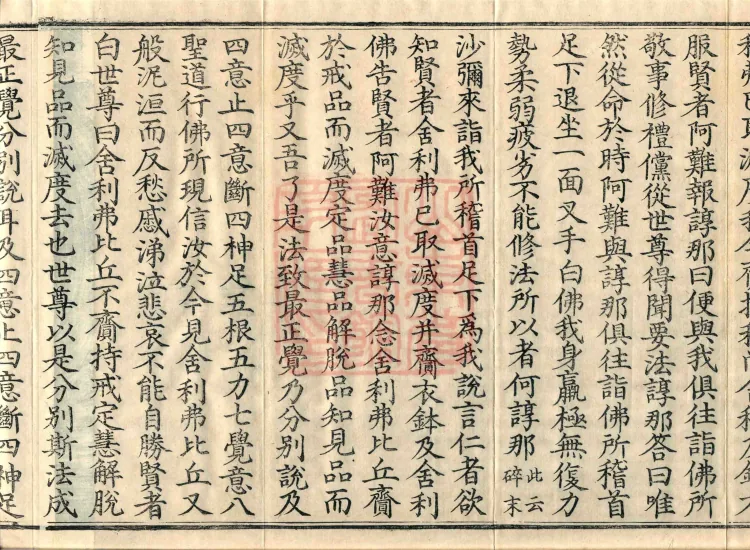 服賢者阿難報諄那曰便與我俱往詣佛所
敬事修禮儻從世尊得聞要法諄那答曰唯
然從命於時阿難與諄那俱往詣佛所稽首
足下退坐一面叉手白佛我身羸極無復力
勢柔弱疲劣不能修法所以者何諄那此云碎末
沙彌來詣我所稽首足下為我說言仁者欲
知賢者舍利弗已取滅度并齎衣鉢及舍利
佛告賢者阿難汝意諄那念舍利弗比丘齎
於戒品而滅度定品慧品解脫品知見品而
滅度乎又吾了是法致最正覺乃分別說及
四意止四意斷四神足五根五力七覺意八
聖道行佛所現信汝於今見舍利弗比丘又
般泥洹而反愁慼涕泣悲哀不能自勝賢者
白世尊曰舍利弗比丘不齎持戒定慧解脫
知見品而滅度去也世尊以是分別斯法成
最正覺分別說耳及四意止四意斷四神足